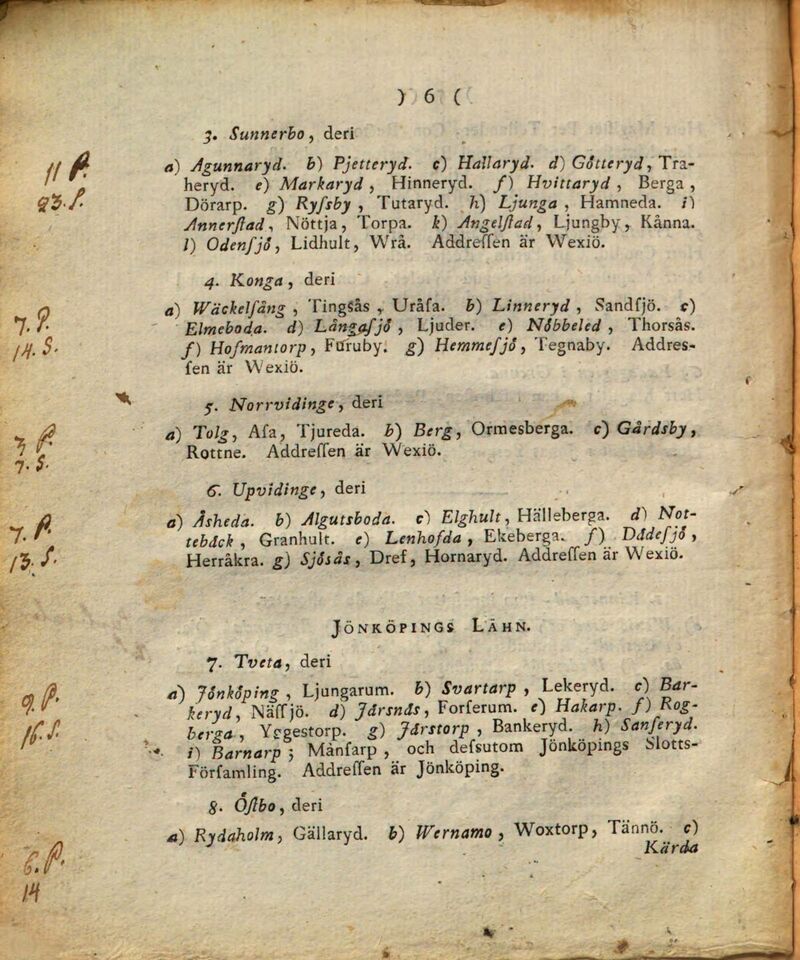 ) 6 (
3. Sunnerbo, deri
a) Agunnaryd. b) Pjetteryd. c) Hallaryd. d) Götteryd, Tra-
heryd. e) Markaryd, Hinneryd. f) Hvittaryd, Berga,
Dörarp. g) Ryſsby, Tutaryd. h) Ljunga, Hamneda. i)
Annerſtad, Nöttja, Torpa. k) Angelſtad, Ljungby, Kånna.
l) Odenſjö, Lidhult, Wrå. Addreſſen är Wexiö.
4. Konga, deri
a) Wäckelſång, Tingsås, Uråſa. b) Linneryd, Sandſjö. c)
Elmeboda. d) Långaſjö, Ljuder. e) Nöbbeled, Thorsås.
f) Hofmantorp, Furuby. g) Hemmeſjö, Tegnaby. Addres-
ſen är Wexiö.
5. Norrvidinge, deri
a) Tolg, Aſa, Tjureda. b) Berg, Ormesberga. c) Gårdsby,
Rottne. Addreſſen är Wexiö.
6. Upvidinge, deri
a) Åsheda. b) Algutsboda. c) Elghult, Hälleberga. d) Not-
tebäck, Granhult. e) Lenhofda, Ekeberga. f) Dädeſjö,
Herråkra. g) Sjösås, Dref, Hornaryd. Addreſſen är Wexiö.
JÖNKÖPINGS LÄHN.
7. Tveta, deri
a) Jönköping, Ljungarum. b) Svartarp, Lekeryd. c) Bar-
keryd, Näſſjö. d) Järsnäs, Forſerum. e) Hakarp. f) Rog-
berga, Ycgestorp. g) Järstorp, Bankeryd. h) Sanſeryd.
i) Barnarp; Månſarp, och deſsutom Jönköpings Slotts-
Förſamling. Addreſſen är Jönköping.
8. Öſtbo, deri
a) Rydaholm, Gällaryd. b) Wernamo, Woxtorp, Tännö. c)
Kärda
11 P.
23. S.
7. P.
14. S.
3 P.
7. S.
7. P.
13. S.
9. P.
16. S.
6. P.
14